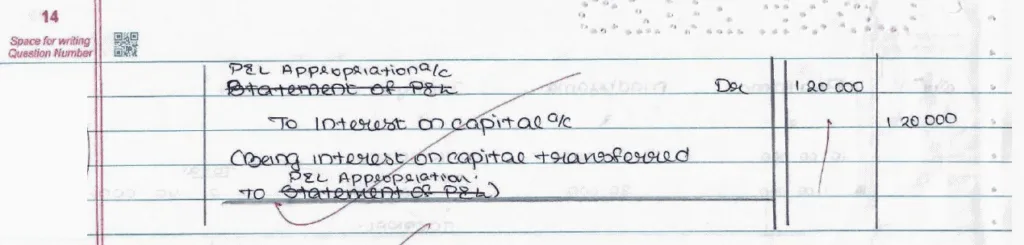 14
Space for writing
Question Number
P&L Appropriation a/c
Statement of P&L Dr 1 20 000
To Interest on capital a/c 1 20 000
(Being interest on capital transferred
P&L Appropriation.
to Statement of P&L)